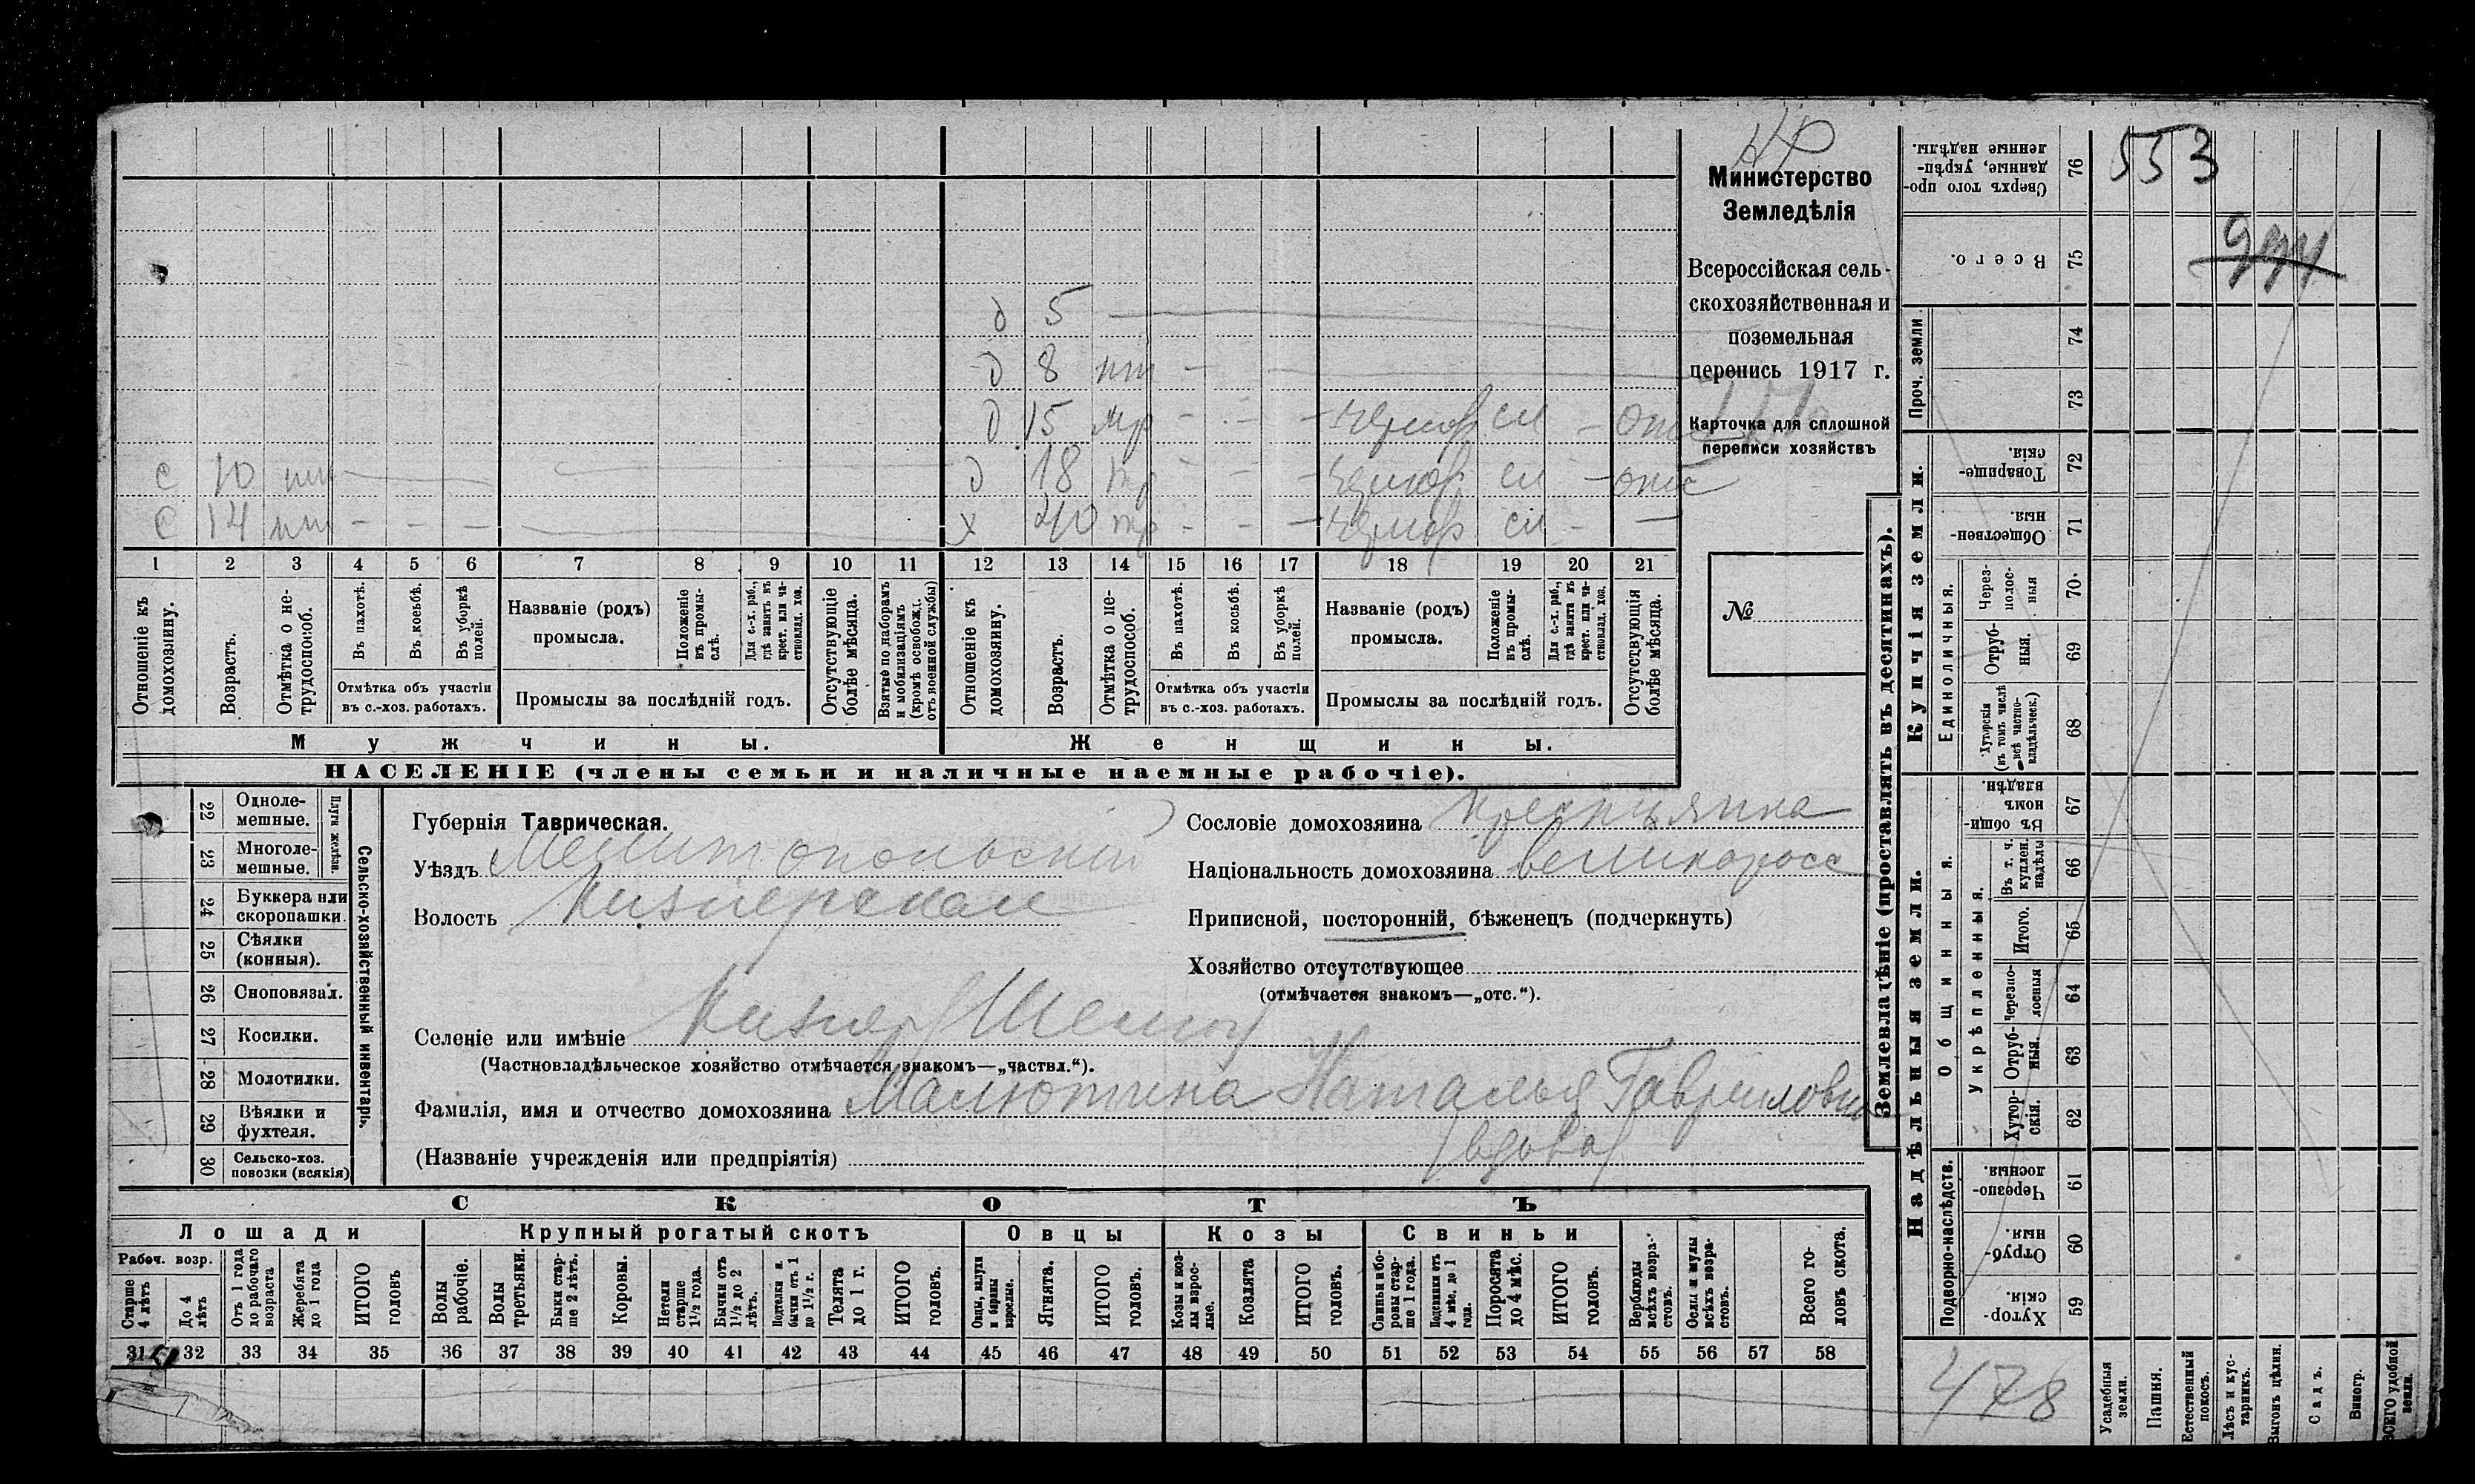 553
944
Министерство
Земледѣлія
Всероссійская сель-
скохозяйственная и
поземельная
перепись 1917 г.
Карточка для сплошной
переписи хозяйствъ
№
д 5
д 8 пт -
д 15 тр - - - чернор сл - отс
с 10 пт д 18 тр - - - чернор сл - отс
с 14 пт - - - х 40 тр - - - чернор сл - -
1 2 3 4 5 6 7 8 9 10 11 12 13 14 15 16 17 18 19 20 21
Отношеніе къ домохозяину.
Возрастъ.
Отмѣтка о не-трудоспособ.
Въ пахотѣ.
Въ косьбѣ.
Въ уборкѣ полей.
Отмѣтка объ участіи
въ с.-хоз. работахъ.
Названіе (родъ)
промысла.
Положеніе въ промы-слѣ.
Для с.-х. раб., гдѣ занятъ въ крест. или ча-стновлад. хоз.
Промыслы за послѣдній годъ.
Отсутствующіе болѣе мѣсяца.
Взятые по наборамъ и мобилизаціямъ (кромѣ освобожд. отъ военной службы)
Отношеніе къ домохозяину.
Возрастъ.
Отмѣтка о не-трудоспособ.
Въ пахотѣ.
Въ косьбѣ.
Въ уборкѣ полей.
Отмѣтка объ участіи
въ с.-хоз. работахъ.
Названіе (родъ)
промысла.
Положеніе въ промы-слѣ.
Для с.-х. раб., гдѣ занята въ крест. или ча-стновлад. хоз.
Промыслы за послѣдній годъ.
Отсутствующія болѣе мѣсяца.
Мужчины.
Женщины.
НАСЕЛЕНІЕ (члены семьи и наличные наемные рабочіе).
Сельско-хозяйственный инвентарь.
Плуги желѣзн.
22 Одноле-мешные.
23 Многоле-мешные.
24 Буккера или скоропашки.
25 Сѣялки (конныя).
26 Сноповязал.
27 Косилки.
28 Молотилки.
29 Вѣялки и фухтеля.
30 Сельско-хоз. повозки (всякія)
Губернія Таврическая.
Уѣздъ Мелитопольскій
Волость Кизіярская
Сословіе домохозяина крестьянка
Національность домохозяина великоросс
Приписной, посторонній, бѣженецъ (подчеркнуть)
Хозяйство отсутствующее
(отмѣчается знакомъ—„отс.“).
Селеніе или имѣніе Кизіяр
(Частновладѣльческое хозяйство отмѣчается знакомъ—„частвл.“).
Фамилія, имя и отчество домохозяина Малютина Наталья Гавриловна
(вдова)
(Названіе учрежденія или предпріятія)
СКОТЪ
Лошади
Крупный рогатый скотъ
Овцы
Козы
Свиньи
Рабоч. возр.
Старше 4 лѣтъ
До 4 лѣтъ
Отъ 1 года до рабочаго возраста
Жеребята до 1 года
ИТОГО головъ
Волы рабочіе.
Волы третьяки.
Быки стар-ше 2 лѣтъ.
Коровы.
Нетели старше 1½ года.
Бычки отъ 1½ до 2 лѣтъ.
Подтелки и бычки отъ 1 до 1½ г.
Телята до 1 г.
ИТОГО головъ.
Овцы, валухи и бараны взрослые.
Ягнята.
ИТОГО головъ.
Козы и коз-лы взрос-лые.
Козлята
ИТОГО головъ.
Свиньи и бо-ровы стар-ше 1 года.
Подсвинки отъ 4 мѣс. до 1 года.
Поросята до 4 мѣс.
ИТОГО головъ.
Верблюды всѣхъ возра-стовъ.
Ослы и мулы всѣхъ возра-стовъ.
Всего го-ловъ скота.
31 32 33 34 35 36 37 38 39 40 41 42 43 44 45 46 47 48 49 50 51 52 53 54 55 56 57 58
Землевладѣніе (проставлять въ десятинахъ).
Надѣльныя земли.
Купчія земли.
Проч. земли
Подворно-наслѣдств.
Общинныя.
Укрѣпленныя.
Единоличныя.
76 Сверхъ того про-данные, укрѣп-ленные надѣлы.
75 Всего.
74
73
72 Товарище-скія.
71 Обществен-ныя.
70 Через-полос-ныя
69 Отруб-ныя.
68 Хуторскія (въ томъ числѣ всѣ частно-владѣльческ.)
67 Въ общи-номъ владѣн
66 Въ т. ч. куплен. надѣлы
65 Итого.
64 Черезпо-лосныя
63 Отруб-ныя.
62 Хутор-скія.
61 Черезпо-лосныя.
60 Отруб-ныя.
59 Хутор-скія.
478
Усадебныя земли.
Пашня.
Естественный покосъ.
Лѣсъ и кус-тарникъ.
Выгонъ цѣлин.
Садъ.
Виногр.
ВСЕГО удобной земли.